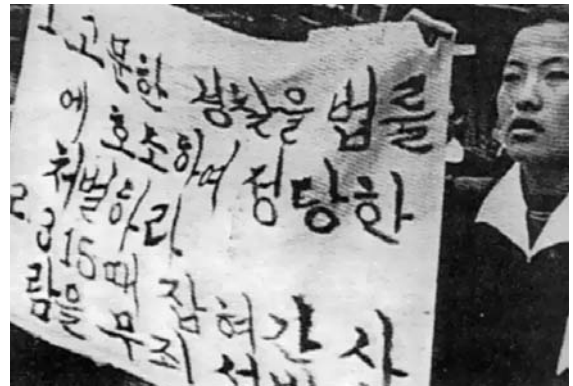 1 고문한 경찰을 법률
에 호소하여 정당한
처벌하라
2. 3.15때 잡혀간 사
람을 무죄 석방